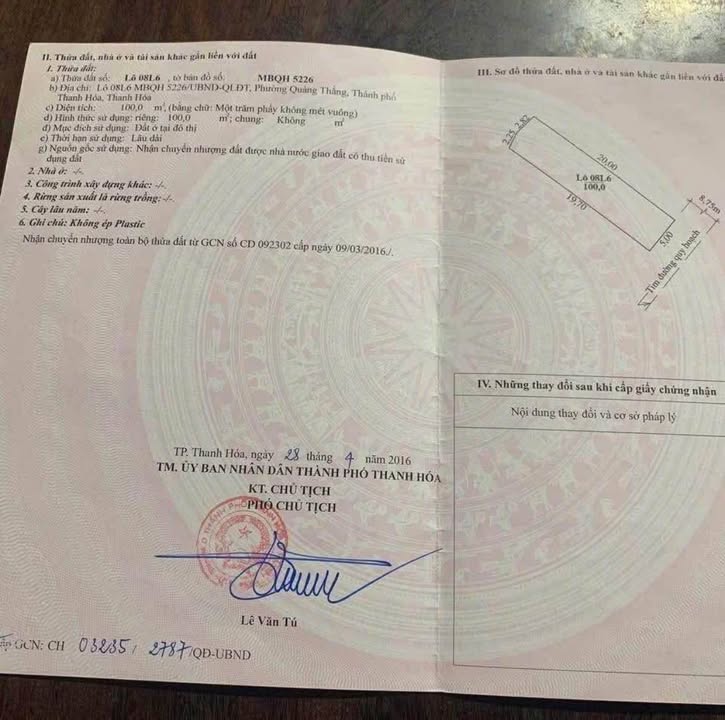 II. Thửa đất, nhà ở và tài sản khác gắn liền với đất
1. Thửa đất:
a) Thửa đất số: Lô 08L6 , tờ bản đồ số: MBQH 5226
b) Địa chỉ: Lô 08L6 MBQH 5226/UBND-QLĐT, Phường Quảng Thắng, Thành phố
Thanh Hóa, Thanh Hóa
c) Diện tích: 100,0 m², (bằng chữ: Một trăm phẩy không mét vuông)
d) Hình thức sử dụng: riêng: 100,0 m²; chung: Không m²
đ) Mục đích sử dụng: Đất ở tại đô thị
e) Thời hạn sử dụng: Lâu dài
g) Nguồn gốc sử dụng: Nhận chuyển nhượng đất được nhà nước giao đất có thu tiền sử
dụng đất
2. Nhà ở: -/-.
3. Công trình xây dựng khác: -/-.
4. Rừng sản xuất là rừng trồng: -/-.
5. Cây lâu năm: -/-.
6. Ghi chú: Không ép Plastic
Nhận chuyển nhượng toàn bộ thửa đất từ GCN số CD 092302 cấp ngày 09/03/2016./.
TP. Thanh Hóa, ngày 28 tháng 4 năm 2016
TM. ỦY BAN NHÂN DÂN THÀNH PHỐ THANH HÓA
KT. CHỦ TỊCH
PHÓ CHỦ TỊCH
Lê Văn Tú
GCN: CH 03235/ 2787/QĐ-UBND
III. Sơ đồ thửa đất, nhà ở và tài sản khác gắn liền với đất
2.25 2.82
20.00
Lô 08L6
100,0
19.70
5.00
8,75m
Tim đường quy hoạch
IV. Những thay đổi sau khi cấp giấy chứng nhận
Nội dung thay đổi và cơ sở pháp lý